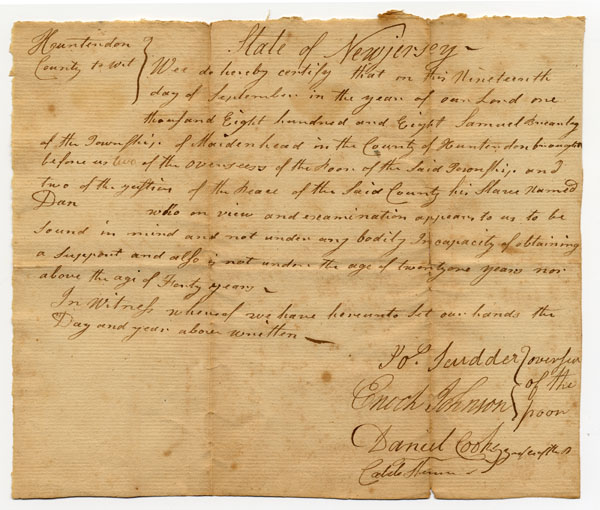 Huntendon
County to wit
State of Newjersey
Wee do hereby certify that on this Nineteenth
day of September in the year of our Lord one
thousand Eight hundred and Eight Samuel Brearley
of the Township of Maidenhead in the County of Huntendon brought
before us two of the overseers of the Poor of the Said Township and
two of the justices of the Peace of the Said County his Slave Named
Dan who on view and examination appears to us to be
Sound in mind and not under any bodily Incapacity of obtaining
a Support and also is not under the age of twenty one years nor
above the age of Forty years
In Witness whereof we have hereunto Set our hands the
Day and year above written
Jos. Scudder
Enoch Johnson
overseers
of the
poor
Daniel Cooke
Caleb